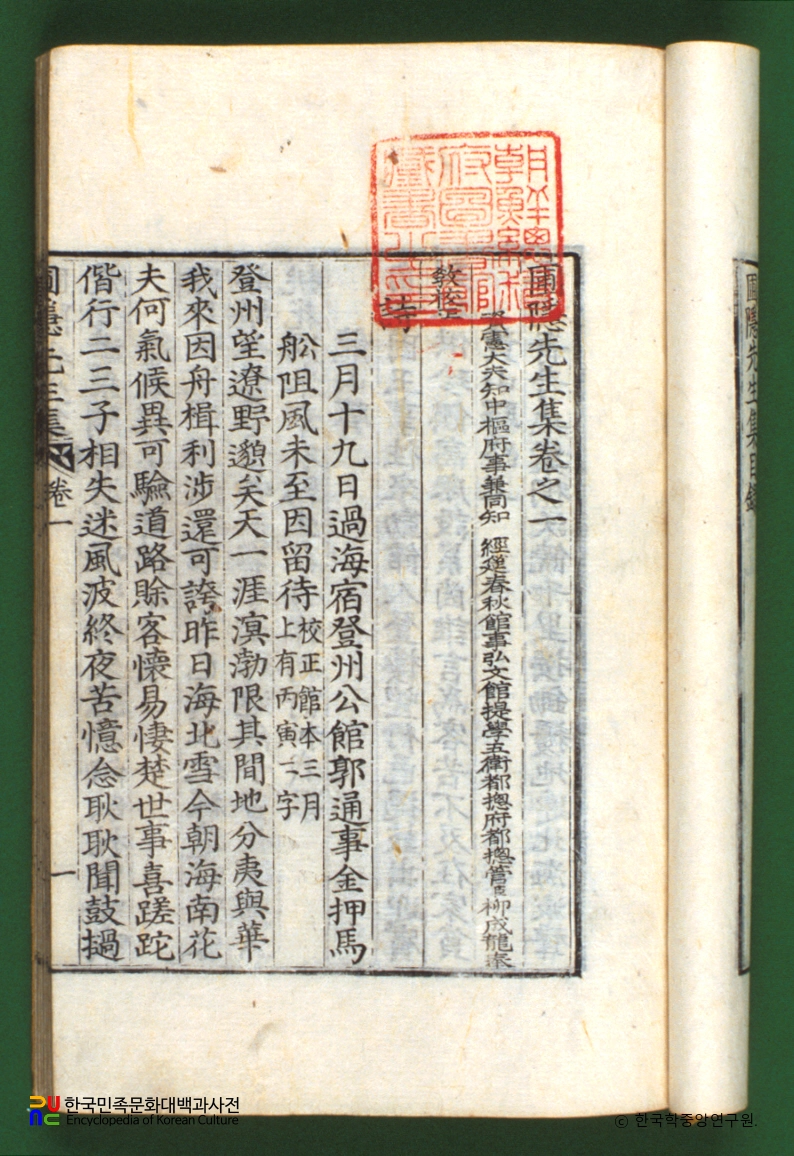 圃隱先生集卷之一
憲大夫知中樞府事兼同知 經筵春秋館事弘文館提學五衛都摠府都摠管臣柳成龍奉
敎校正
詩
三月十九日過海宿登州公館郭通事金押馬
舩阻風未至因留待校正舘本三月上有丙寅二字
登州望遼野邈矣天一涯溟渤限其間地分夷與華
我來因舟楫利涉還可誇昨日海北雪今朝海南花
夫何氣候異可驗道路賒客懷易悽楚世事喜蹉跎
偕行二三子相失迷風波終夜苦憶念耿耿聞鼓撾
圃隱先生集 卷一 一
圃隱先生集目錄
朝鮮總督府圖書館藏書之印
한국민족문화대백과사전
Encyclopedia of Korean Culture
© 한국학중앙연구원.